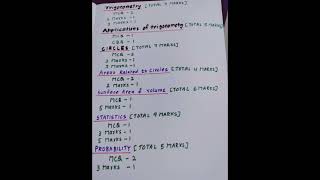 Trigonometry [TOTAL 7 MARKS]
MCQ - 2
2 MARKS - 1
3 MARKS - 1
Applications of trigonometry [TOTAL 5 MARKS]
MCQ - 1
CBQ - 1
CIRCLES [TOTAL 7 MARKS]
MCQ - 2
2 MARKS - 1
3 MARKS - 1
Areas Related to Circles [TOTAL 4 MARKS]
MCQ - 2
2 MARKS - 1
Surface Area & Volume [TOTAL 6 MARKS]
MCQ - 1
5 MARKS - 1
STATISTICS [TOTAL 9 MARKS]
MCQ - 1
3 MARKS - 1
5 MARKS - 1
PROBABILITY [TOTAL 5 MARKS]
MCQ - 2
3 MARKS - 1